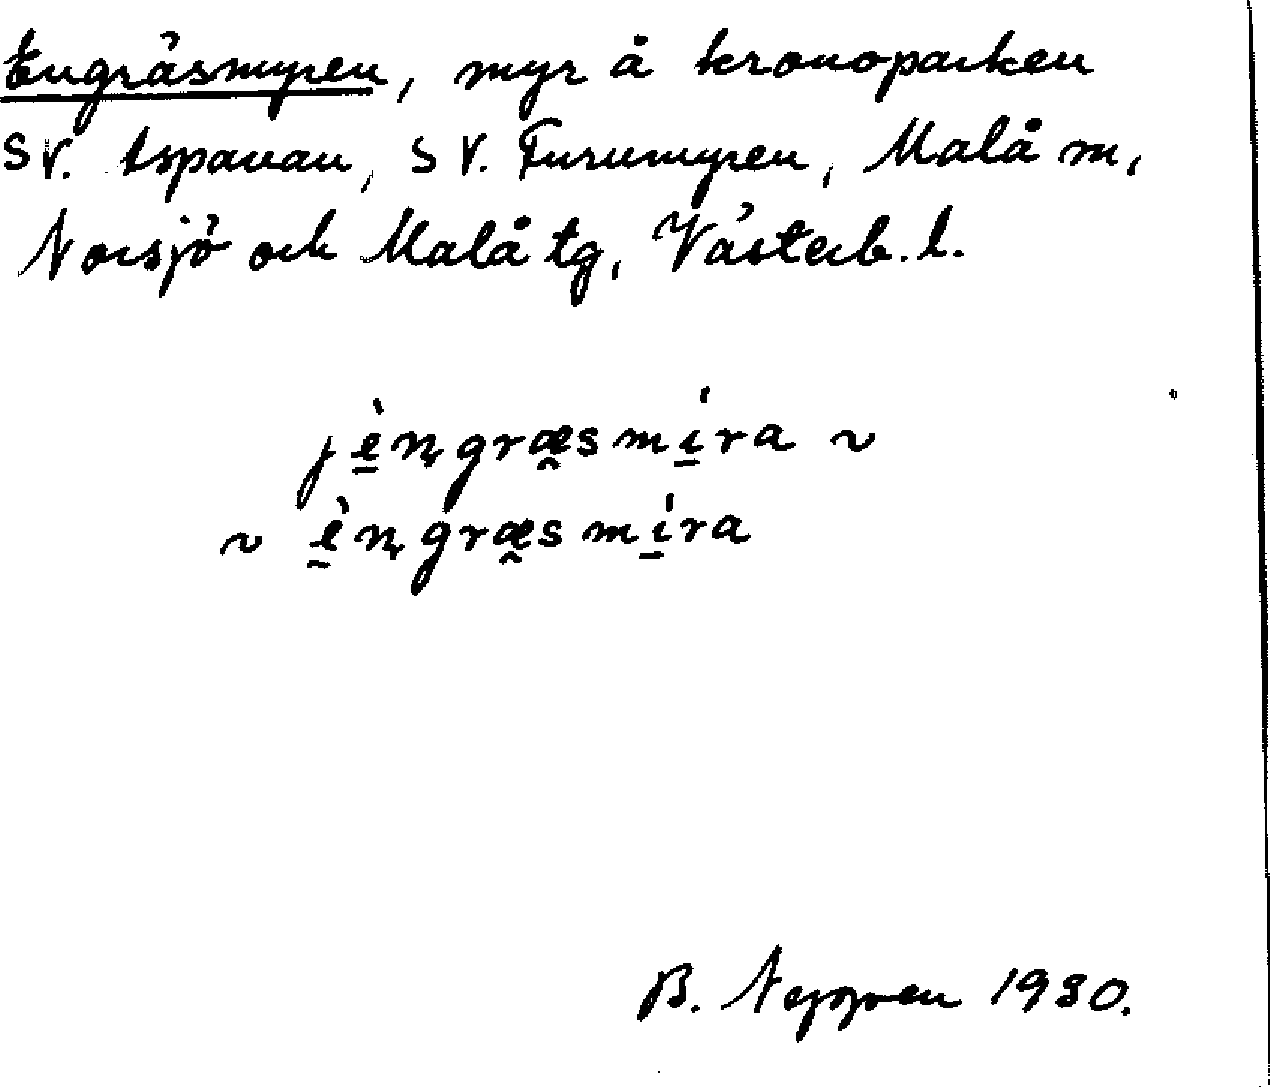 Engräsmyren, myr å kronoparken
SV. Aspanan, SV. Furumyren, Malå sn,
Norsjö och Malå tg, Västerb. l.
jèn̥græsmíra ~
~ èn̥græsmíra
B. 1930.